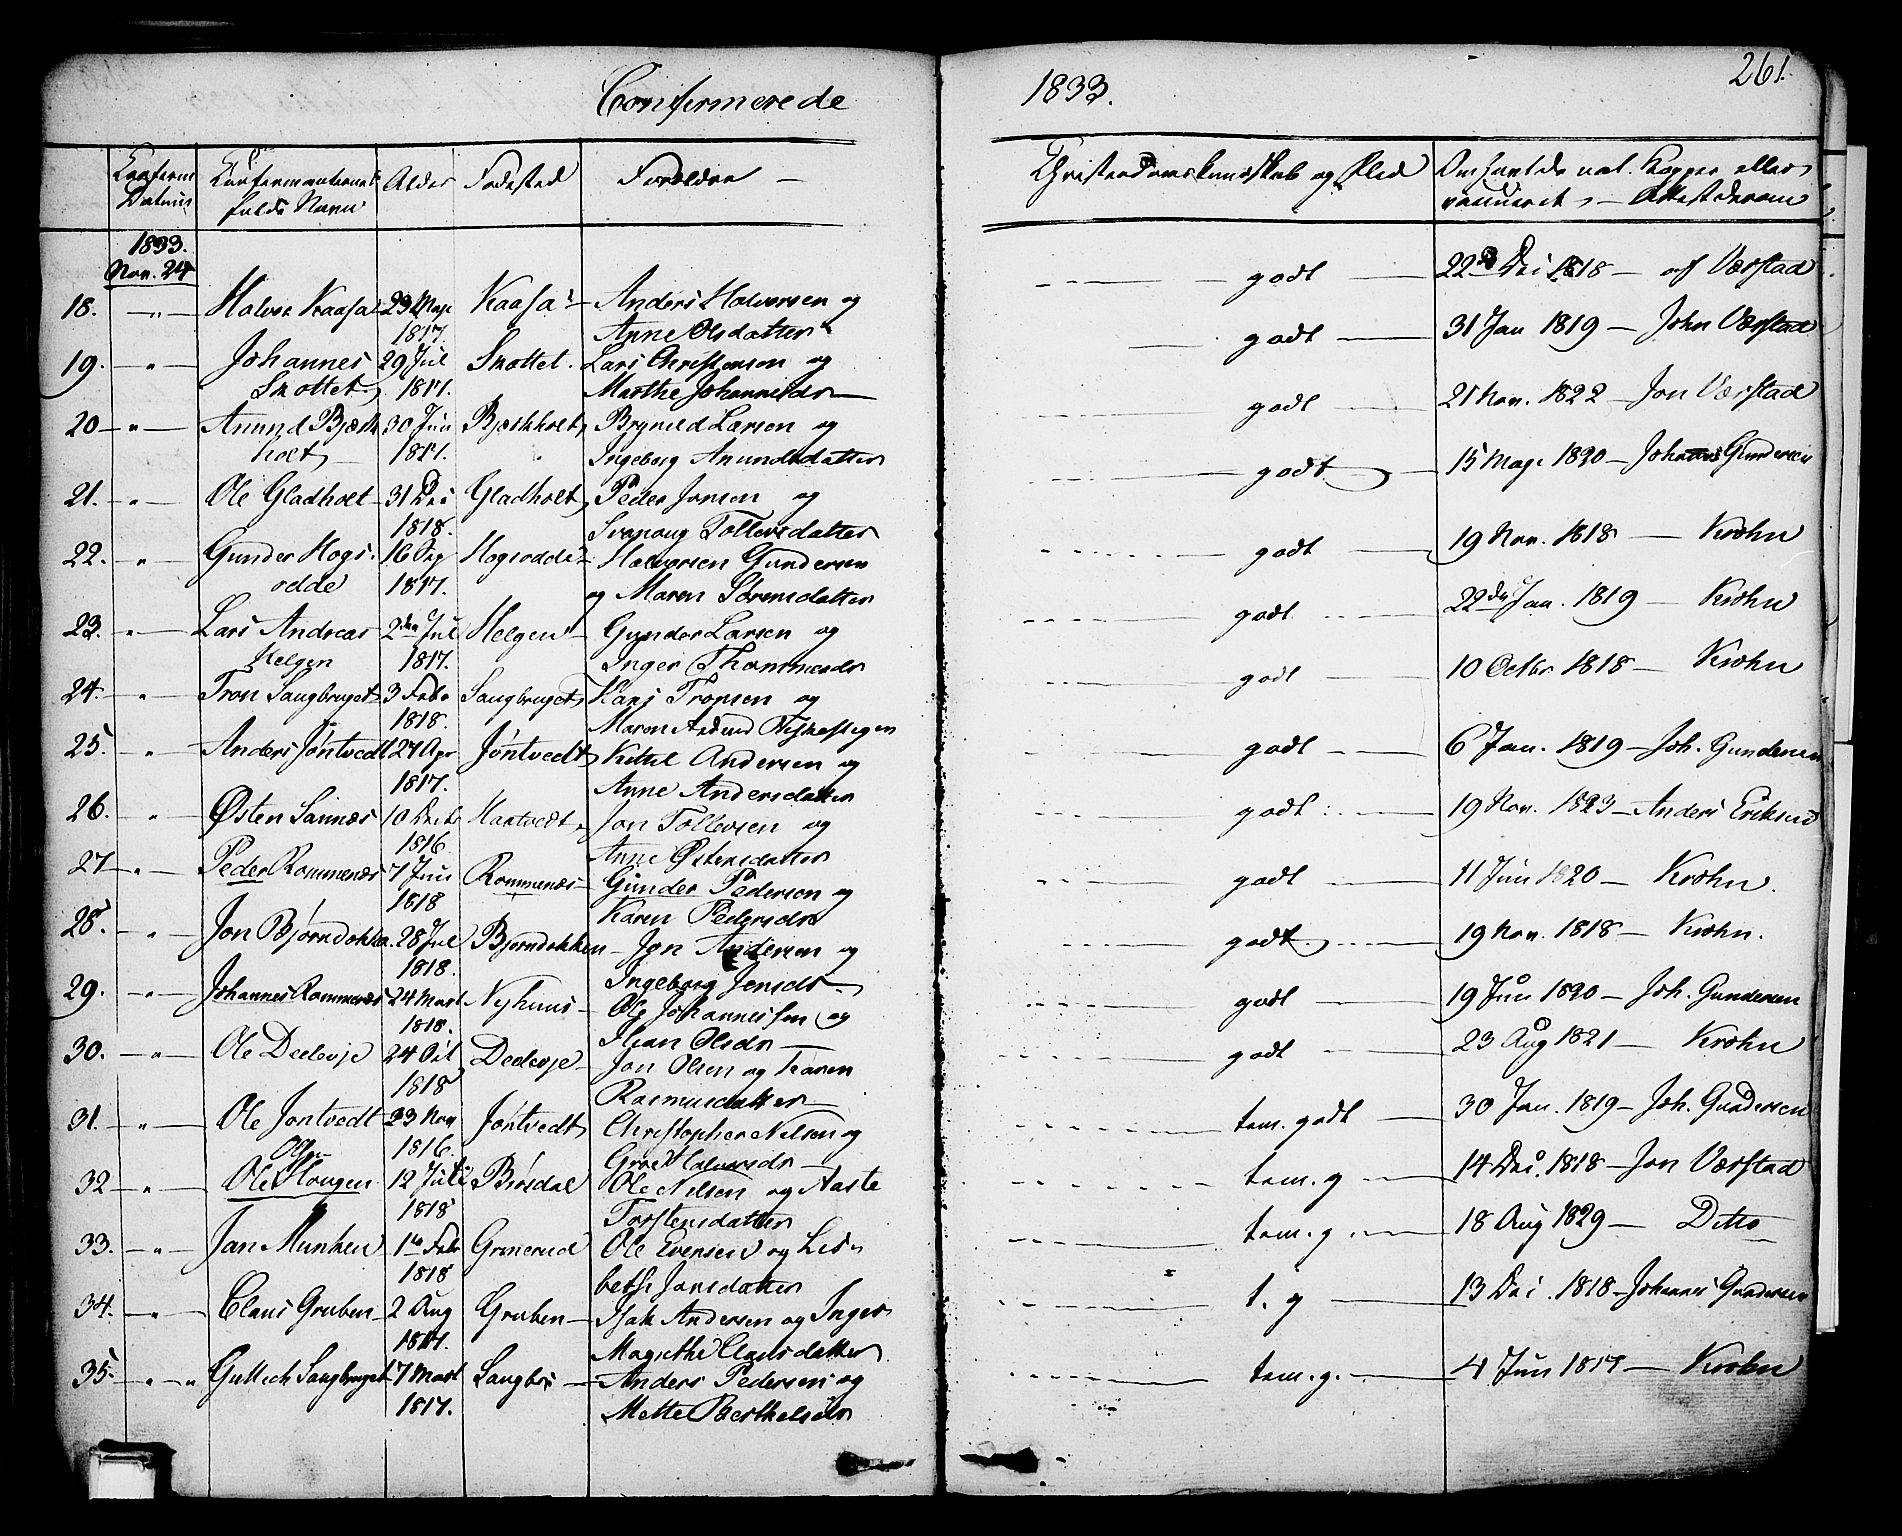 Confirmerede 1833. 261.
Confirm Datum Confirmanternes fulde Navn Alder Fødested Forældre Christendomskundskab og Flid Om havt de nat. Kopper eller vaccineret, Attest derom
1833.
Nov. 24
18. Halvor Kaasa 23 Maji 1817. Kaasa Anders Halvorsen og Anne Olsdatter godt 22 Dec 1818 af Værstad
19. Johannes Skottet 29 Jul Skottet. Lars Christensen og Marthe Johannesdr godt 31 Jan 1819 John Værstad
20 Anund Bjerkholt 30 Jun Bjerkholt Brynild Larsen og Ingeborg Anundsdatter godt 21 Nov. 1822 Jon Værstad
21. Ole Gladholt 31 Dec 1818. Gladholt Peder Jonsen og Svanaug Tollevsdatter godt 15 Maji 1820 Johannes Gundersen
22. Gunder Hogsodde 16 1817. Hogsodde Halvorsen Gundersen og Maren Sørensdatter godt 19 Nov. 1818 Krohn
23. Lars Andreas Helgen 2den Jul 1817. Helgen Gunder Larsen og Inger Thommesdr godt 22de Jan. 1819 Krohn
24. Tron Saugbruget 3 Febr 1818. Saugbruget Hans Tronsen og Maren godt 10 Octbr 1818 Krohn
25. Anders Jøntvedt 27 Apr 1817. Jøntvedt Kittil Andersen og Anne Andersdatter godt 6 Jan. 1819 Joh. Gundersen
26. Østen Sannæs 10 1816. Hartvedt Jon Tollevsen og Anne Østensdatter godt 19 Nov. 1823 Anders Eriksen
27 Peder Rommenæs 7 Jun 1818 Rommenæs Gunder Pedersen og Karen Pedersdr godt 11 Jun 1820 Krohn.
28. Jon Bjørndokka. 28 Jul 1818. Bjørndokken Jon Andersen og Ingeborg Jensdr godt 19 Nov. 1818 Krohn.
29. Johannes Rommenæs 24 Mart 1818. Nyhuus Ole Johannessen og Olsdr godt 19 Jun 1820 Joh. Gundersen
30. Ole Deelevje 24 Oct 1818 Deelevje Jon Olsen og Karen Rasmusdatter godt 23 Aug 1821 Krohn
31. Ole Jøntvedt 23 Nov 1816. Jøntvedt Christopher Nilsen og Groe Halvorsdr tem. godt 30 Jan. 1819 Joh. Gundersen
32 Ole Olsen Haugen 12 Juli 1818 Ole Nilsen og Aaste Torstensdatter tem. g 14 Dec. 1818 Jon Værstad
33. Jan Munken 1te Febr 1818 Grinerud Ole Evensen og Lisbeth Jansdatter tem. g. 18 Aug 1829 Ditto
34. Claus Gruben 2 Aug 1817. Gruben Isak Andersen og Inger Magrethe Clausdatter t. g 13 Dec. 1818 Johannes Gundersen
35. Gullich Saugbruget 7 Mart 1817. Saugbr Anders Pedersen og Mette Berthelsdr tem. g. 4 Jun 1817 Krohn